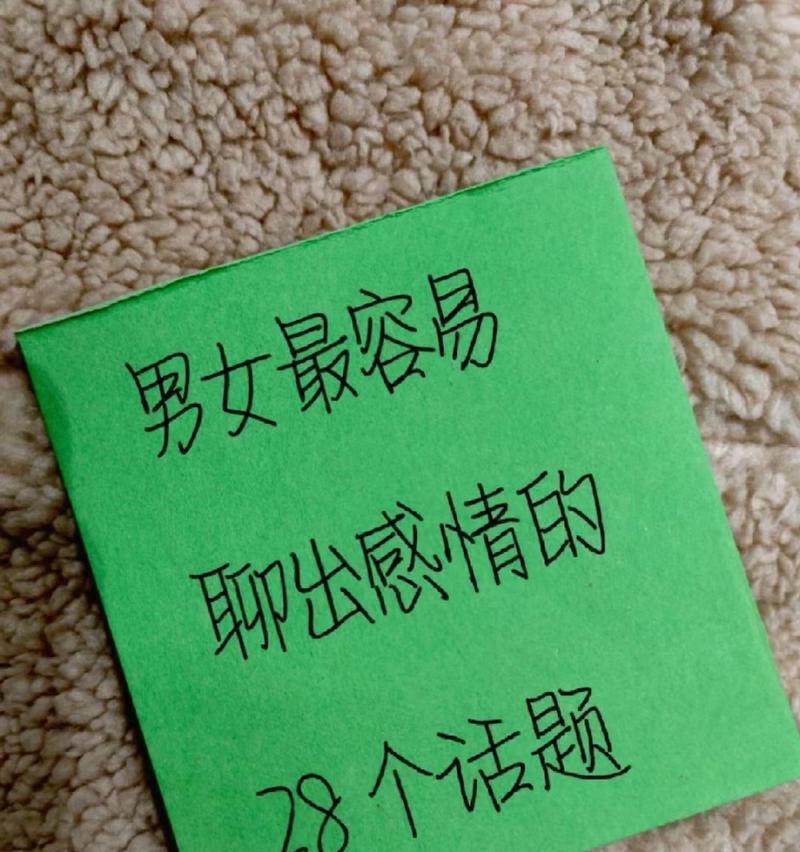 男女最容易
聊出感情的
28个话题